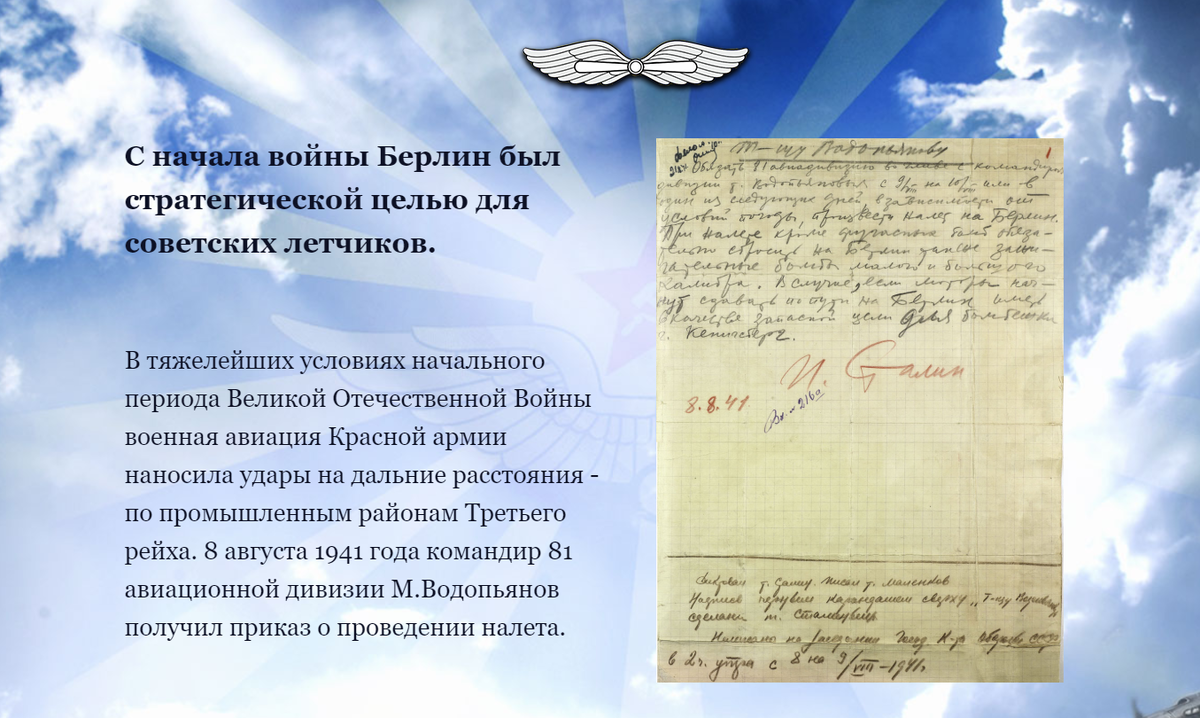 С начала войны Берлин был
стратегической целью для
советских летчиков.
В тяжелейших условиях начального
периода Великой Отечественной Войны
военная авиация Красной армии
наносила удары на дальние расстояния -
по промышленным районам Третьего
рейха. 8 августа 1941 года командир 81
авиационной дивизии М.Водопьянов
получил приказ о проведении налета.
Т-щу Водопьянову
1
Обязать 81 авиадивизию во главе с командиром
дивизии т. Водопьяновым с 9/VIII на 10/VIII или в
один из следующих дней, в зависимости от
условий погоды, произвести налет на Берлин.
При налете кроме фугасных бомб обяза-
тельно сбросить на Берлин также зажи-
гательные бомбы малого и большого
калибра. В случае, если моторы нач-
нут сдавать по пути на Берлин иметь
в качестве запасной цели для бомбежки
г. Кенигсберг.
И. Сталин
8.8.41
Диктовал т. Сталин, писал т. Маленков
Надпись черным карандашом сверху „Т-щу
сделана т. Сталиным
Написано на заседании Госуд. К-та обороны СССР
в 2 ч. утра с 8 на 9/VIII-1941г